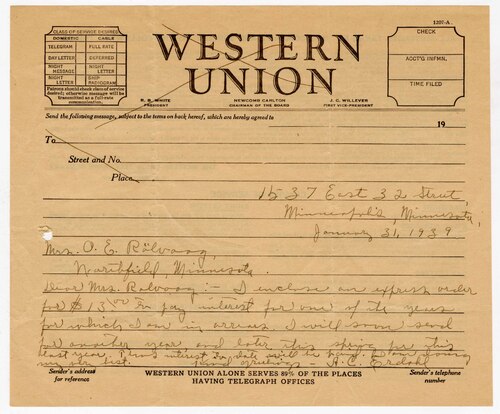 1207-A
CLASS OF SERVICE DESIRED
DOMESTIC CABLE
TELEGRAM FULL RATE
DAY LETTER DEFERRED
NIGHT MESSAGE NIGHT LETTER
NIGHT LETTER SHIP RADIOGRAM
Patrons should check class of service
desired; otherwise message will be
transmitted as a full-rate
communication.
WESTERN
UNION
R. B. WHITE
PRESIDENT
NEWCOMB CARLTON
CHAIRMAN OF THE BOARD
J. C. WILLEVER
FIRST VICE-PRESIDENT
CHECK
ACCT'G INFMN.
TIME FILED
Send the following message, subject to the terms on back hereof, which are hereby agreed to
19
To
Street and No.
Place
1537 East 32 Street,
Minneapolis, Minnesota,
January 31, 1939
Mrs. O. E. Rölvaag,
Northfield, Minnesota.
Dear Mrs. Rolvaag:- I enclose an express order
for $13.00 to pay interest for one of the years
for which I am in arrears. I will soon send
for another year, and later this spring for this
last year. interest to date will be I am doing
my very best. A. C. Erdahl
Sender's address
for reference
WESTERN UNION ALONE SERVES 89% OF THE PLACES
HAVING TELEGRAPH OFFICES
Sender's telephone
number